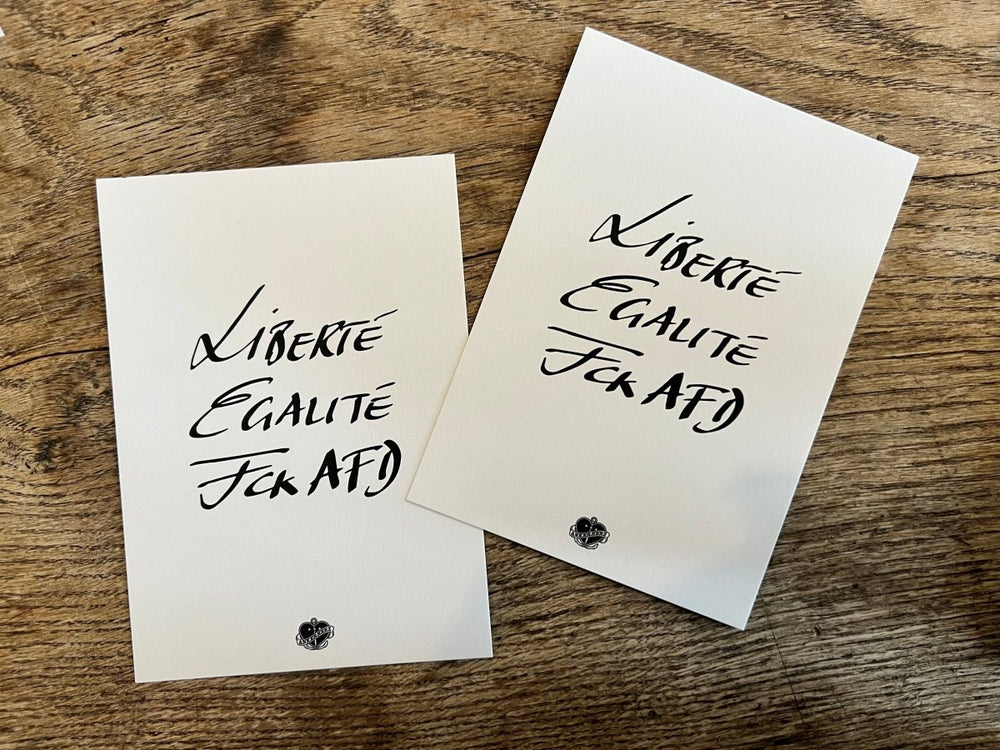 LIBERTÉ
EGALITÉ
FCK AFD
LIBERTÉ
EGALITÉ
FCK AFD